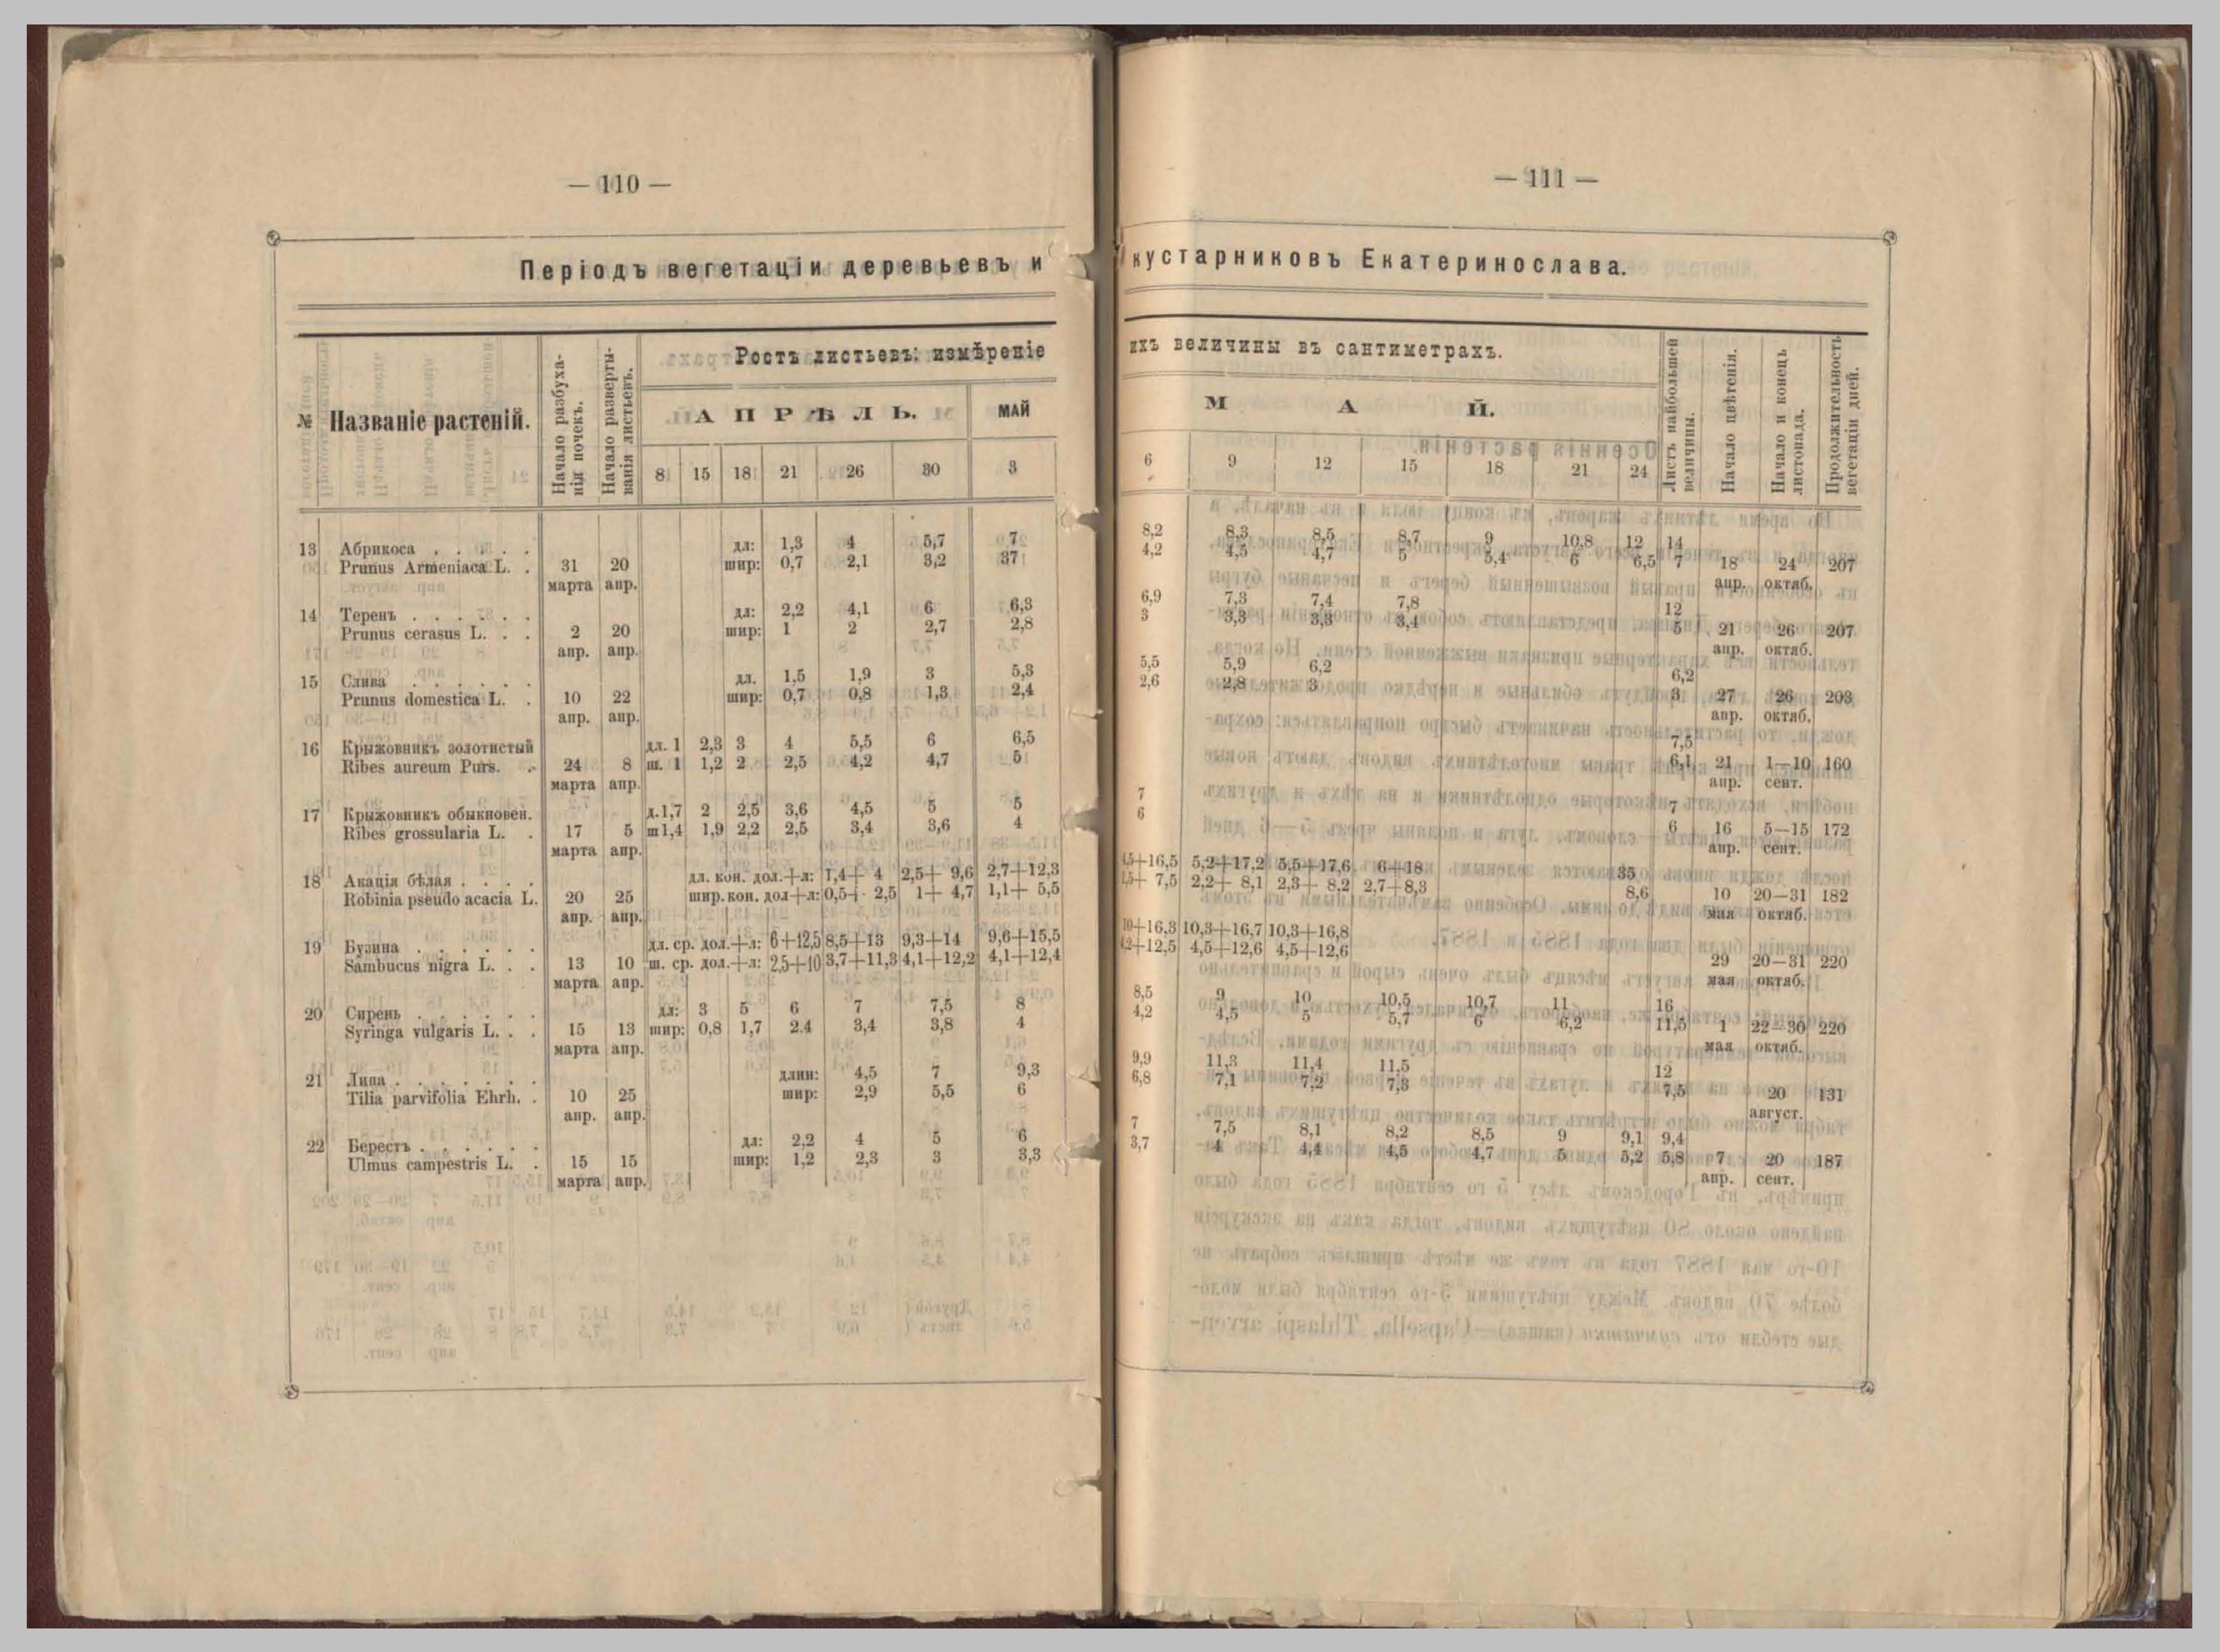 — 110 —
Періодъ вегетаціи деревьевъ и
№ Названіе растеній.
Начало разбуха-
нія почекъ.
Начало разверты-
ванія листьевъ.
Ростъ листьевъ: измѣреніе
АПРѢЛЬ. МАЙ
8 15 18 21 26 30 3
13 Абрикоса . . . . . дл: 1,3 4 5,7 7
Prunus Armeniaca L. . 31 20 шир: 0,7 2,1 3,2 37
марта апр.
14 Теренъ . . . . . . дл: 2,2 4,1 6 6,3
Prunus cerasus L. . . 2 20 шир: 1 2 2,7 2,8
апр. апр.
15 Слива . . . . . . дл. 1,5 1,9 3 5,3
Prunus domestica L. . 10 22 шир: 0,7 0,8 1,3 2,4
апр. апр.
16 Крыжовникъ золотистый дл. 1 2,3 3 4 5,5 6 6,5
Ribes aureum Purs. . 24 8 ш. 1 1,2 2 2,5 4,2 4,7 5
марта апр.
17 Крыжовникъ обыкновен. д.1,7 2 2,5 3,6 4,5 5 5
Ribes grossularia L. . 17 5 ш1,4 1,9 2,2 2,5 3,4 3,6 4
марта апр.
18 Акація бѣлая . . . . дл. кон. дол.+л: 1,4+ 4 2,5+ 9,6 2,7+12,3
Robinia pseudo acacia L. 20 25 шир. кон. дол+л: 0,5+ 2,5 1+ 4,7 1,1+ 5,5
апр. апр.
19 Бузина . . . . . . дл. ср. дол.+л: 6+12,5 8,5+13 9,3+14 9,6+15,5
Sambucus nigra L. . . 13 10 ш. ср. дол.+л: 2,5+10 3,7+11,3 4,1+12,2 4,1+12,4
марта апр.
20 Сирень . . . . . . дл: 3 5 6 7 7,5 8
Syringa vulgaris L. . . 15 13 шир: 0,8 1,7 2.4 3,4 3,8 4
марта апр.
21 Липа . . . . . . . длин: 4,5 7 9,3
Tilia parvifolia Ehrh. . 10 25 шир: 2,9 5,5 6
апр. апр.
22 Берестъ . . . . . . дл: 2,2 4 5 6
Ulmus campestris L. . 15 15 шир: 1,2 2,3 3 3,3
марта апр.
— 111 —
кустарниковъ Екатеринослава.
ихъ величины въ сантиметрахъ.
МАЙ.
6 9 12 15 18 21 24
Листъ наибольшей
величины.
Начало цвѣтенія.
Начало и конецъ
листопада.
Продолжительность
вегетаціи дней.
8,2 8,3 8,5 8,7 9 10,8 12 14
4,2 4,5 4,7 5 5,4 6 6,5 7 18 24 207
апр. октяб.
6,9 7,3 7,4 7,8 12
3 3,3 3,3 3,4 5 21 26 207
апр. октяб.
5,5 5,9 6,2 6,2
2,6 2,8 3 3 27 26 203
апр. октяб.
7,5
6,1 21 1—10 160
апр. сент.
7 7
6 6 16 5—15 172
апр. сент.
4,5+16,5 5,2+17,2 5,5+17,6 6+18 35
1,5+ 7,5 2,2+ 8,1 2,3+ 8,2 2,7+8,3 8,6 10 20—31 182
мая октяб.
10+16,3 10,3+16,7 10,3+16,8
4,2+12,5 4,5+12,6 4,5+12,6 29 20—31 220
мая октяб.
8,5 9 10 10,5 10,7 11 16
4,2 4,5 5 5,7 6 6,2 11,5 1 22—30 220
мая октяб.
9,9 11,3 11,4 11,5 12
6,8 7,1 7,2 7,3 7,5 20 131
август.
7 7,5 8,1 8,2 8,5 9 9,1 9,4
3,7 4 4,4 4,5 4,7 5 5,2 5,8 7 20 187
апр. сент.